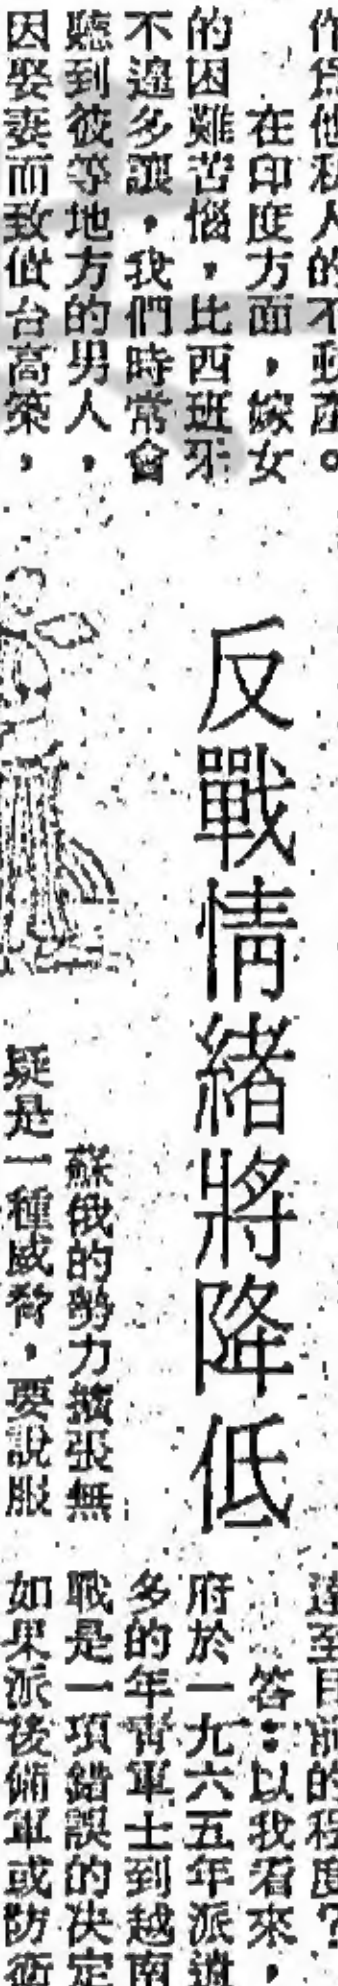 作爲他私人的不動產。
在印度方面，嫁女
的困難苦惱，比西班牙
不遑多讓，我們時常會
聽到彼等地方的男人，
因娶妻而致債台高築，
反戰情緒將降低
蘇俄的勢力擴張無
疑是一種威脅，要說服
達至目前的程度？
答：以我看來，
府於一九六五年派遣
多的年青軍士到越南
戰是一項錯誤的决定
如果派後備軍或防衛